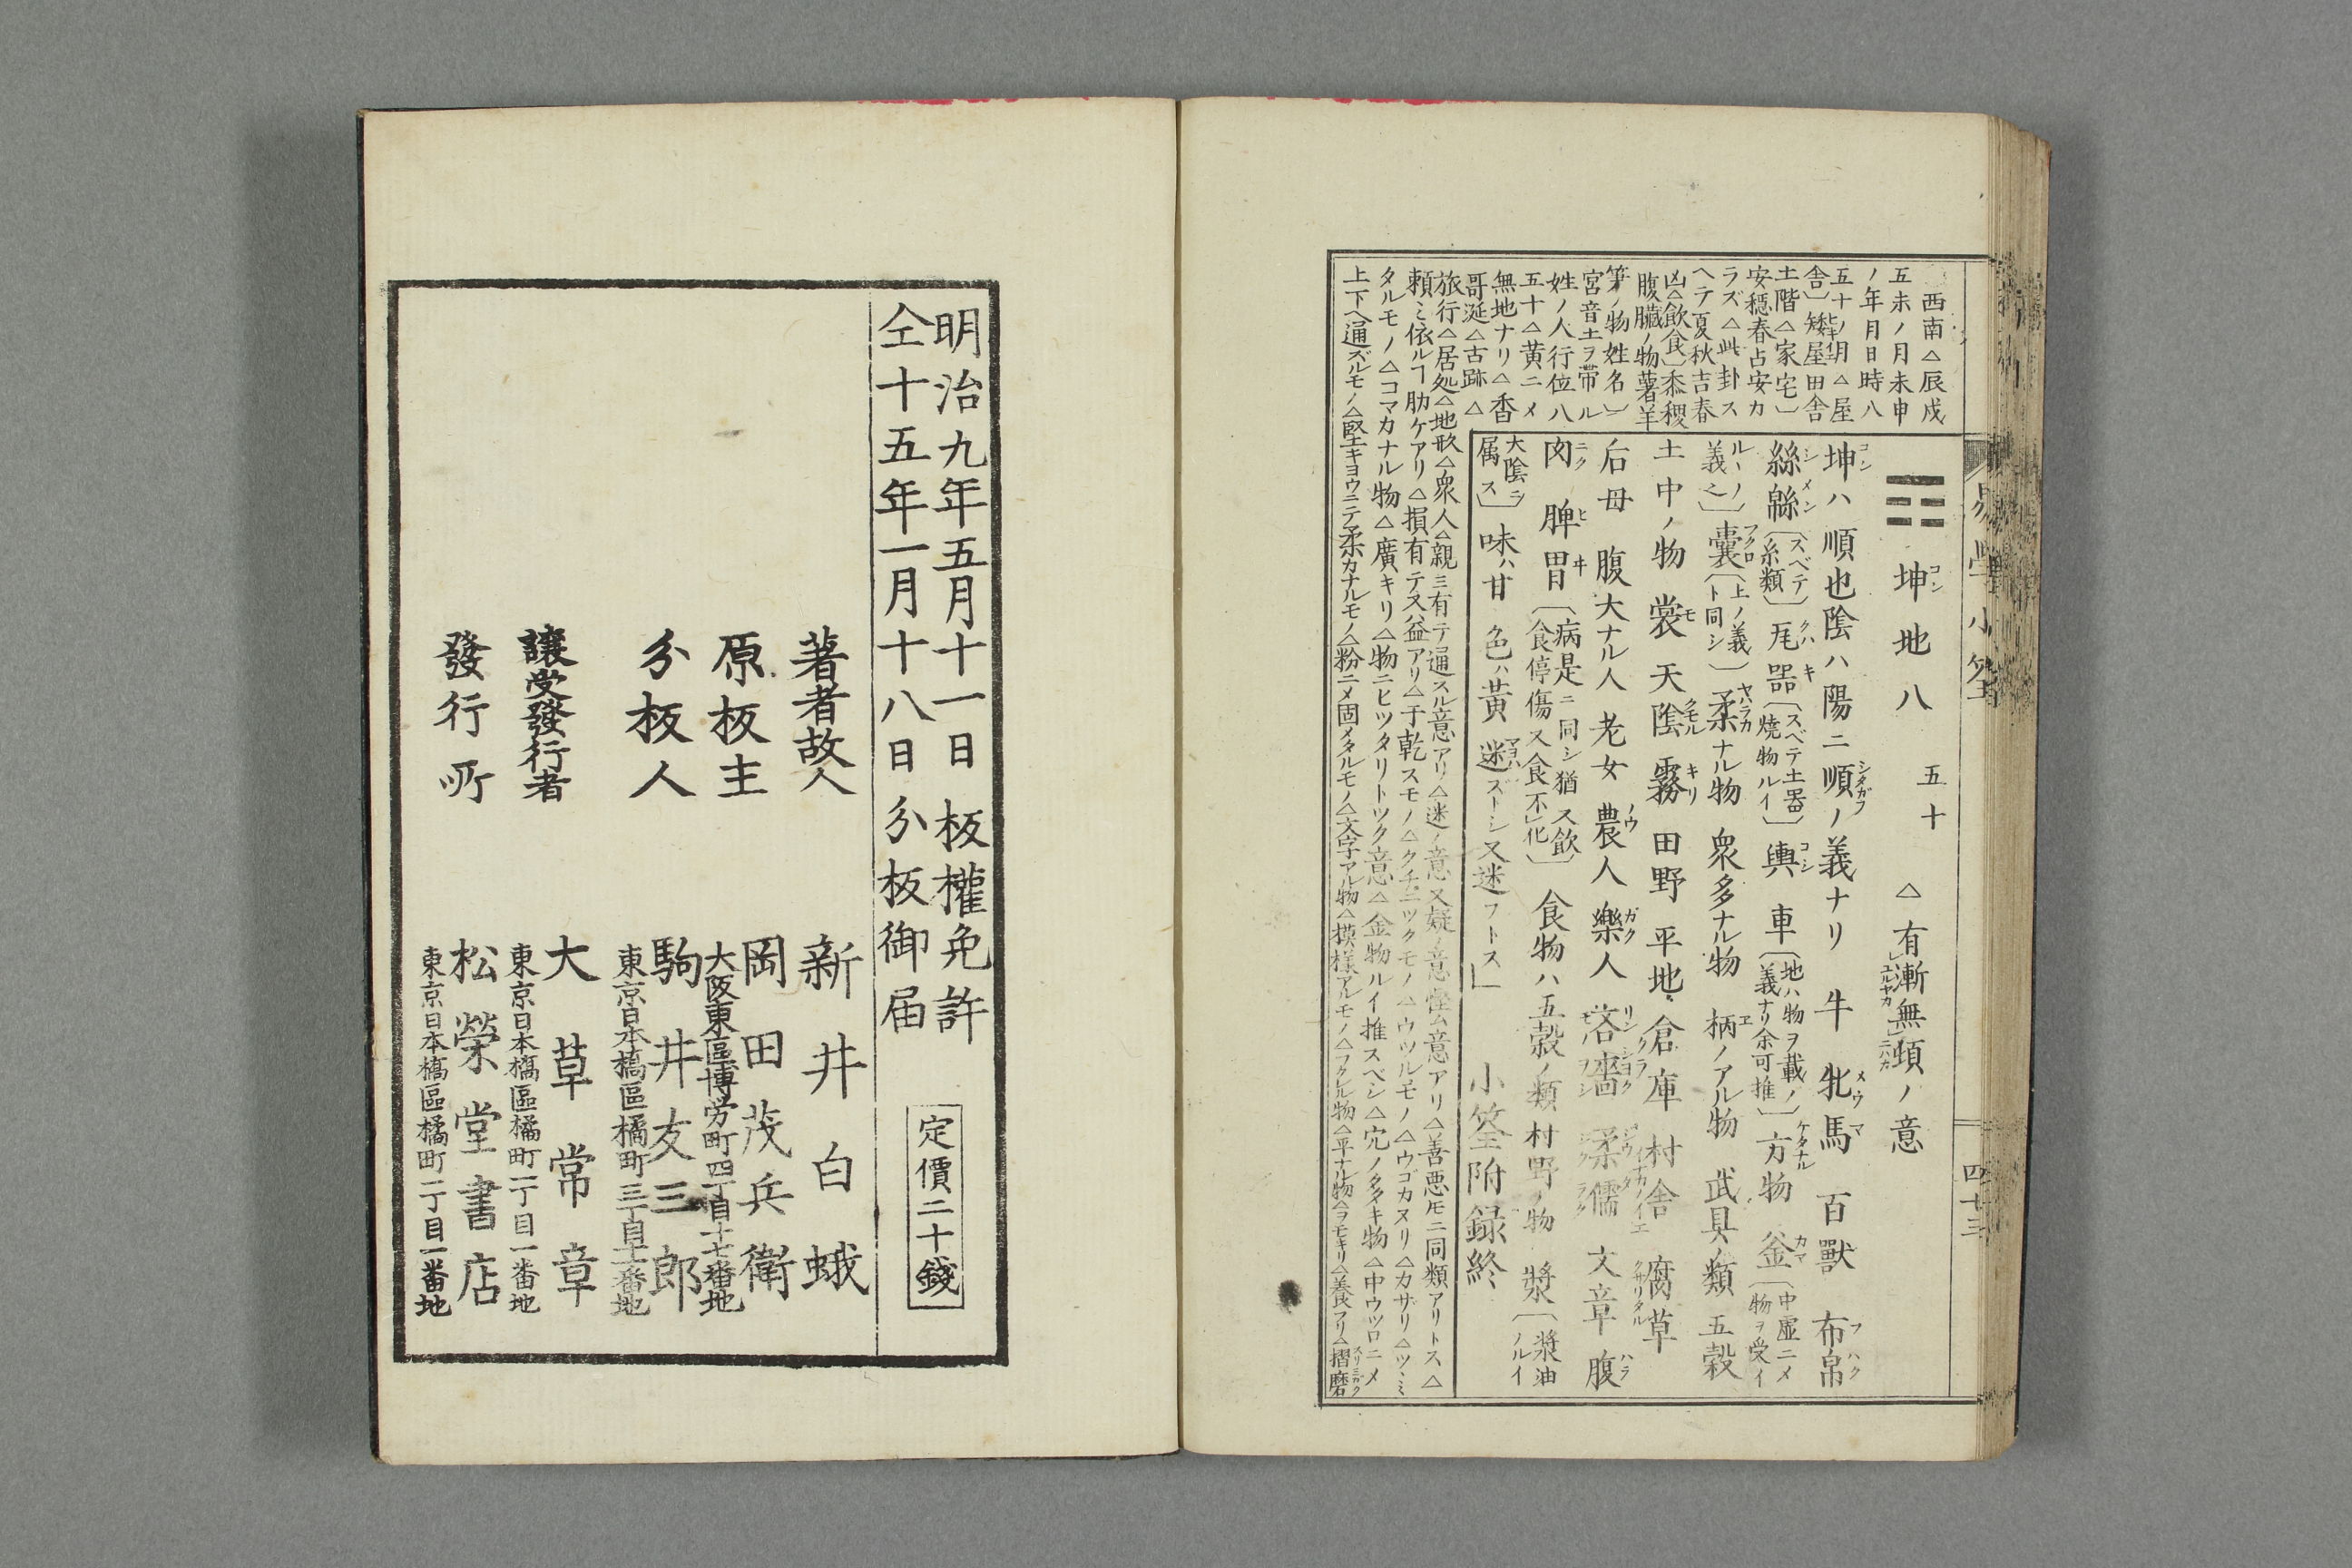 西南△辰戌
五未ノ月未申
ノ年月日時八
五十ノ月△屋
舎〕矮屋田舎
土階△家宅〕
安穏春占安カ
ラズ△此卦ス
ヘテ夏秋吉春
凶△飲食〕黍稷
腹臓ノ物薯羊
笋ノ物姓名〕
宮音土ヲ帯ル
姓ノ人行位八
五十△黄ニメ
無地ナリ△香
哥涎△古跡△
☷坤地八 五十 △有漸無頓ノ意
坤ハ順也陰ハ陽ニ順ノ義ナリ 牛 牝馬 百獸 布帛
絲緜〔スベテ糸類〕瓦噐〔スベテ土噐焼物ルイ〕輿 車〔地ハ物ヲ載ノ義ナリ余可推〕方物 釜〔中虚ニメ物ヲ受イ
ルーノ義之〕囊〔上ノ義ト同シ〕柔ナル物 衆多ナル物 柄ノアル物 武具ノ類 五穀
土中ノ物 裳 天陰 霧 田野 平地 倉庫 村舎 腐草
后母 腹大ナル人 老女 農人 樂人 吝嗇 柔儒 文章 腹
肉 脾胃〔病是ニ同シ猶ス飲食停傷又食不化〕食物ハ五穀ノ類 村野ノ物 漿〔漿油ノルイ
大陰ラ属ス〕味ハ甘 色ハ黄 迷ズトーシ又迷フトス」 小筌附録終
旅行△居処△地形△衆人△親ミ有テ通スル意アリ△迷ノ意又疑ノ意△意アリ△善悪厇ニ同類アリトス△
頼ミ依ルヿ肋ケアリ△損有テ又益アリ△于乾スモノ△クチニツクモノ△ウツルモノ△ウゴカヌリ△カザリ△ツヽミ
タルモノ△コマカナル物△廣キリ△物ニヒツタリトツク意△金物ルイ推スベシ△穴ノタ キ物△中ウツロニメ
上下ヘ通ズルモノ△堅キヨウニテ柔カナルモノ△粉ニメ固メタルモノ△文字アル物△模様アルモノ△フクル物△平ナル物△ウラモキリ△養フリ△摺磨
易學小筌
四十三
明治九年五月十一日 板權免許
仝十五年一月十八日 分板御届
定價二十錢
著者故人 新井白蛾
原板主 岡田茂兵衛
大阪東區博労町四丁目十七番地
分板人 駒井友三郎
東京日本橋區橘町三丁目十番地
譲受發行者 大草常章
東京日本橋區橘町一丁目一番地
發行所 松榮堂書店
東京日本橋區橘町一丁目一番地